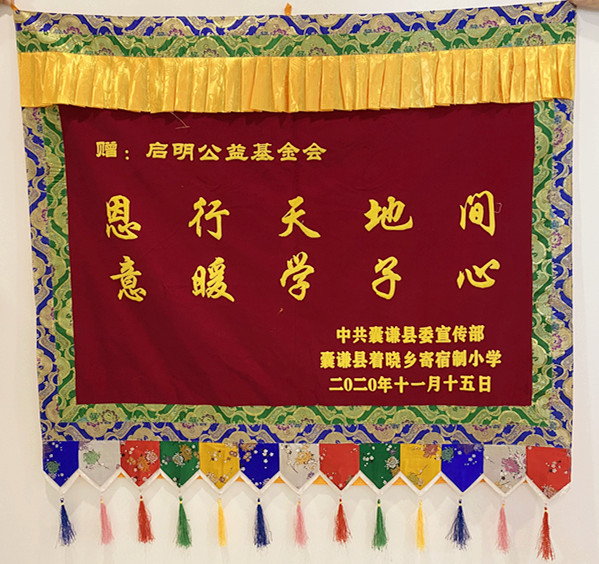 赠：启明公益基金会
恩行天地间
意暖学子心
中共囊谦县委宣传部
囊谦县着晓乡寄宿制小学
二0二0年十一月十五日